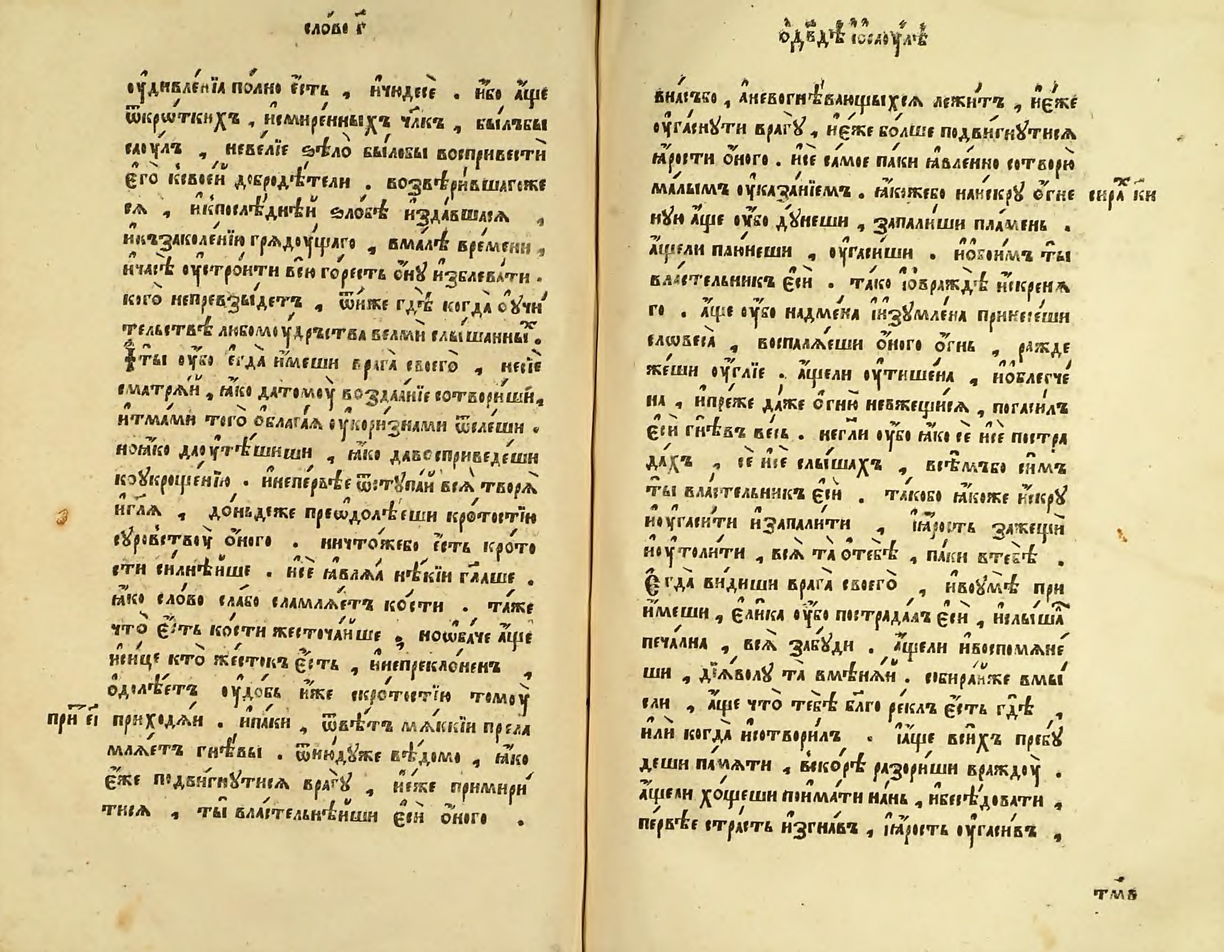 сло́во г҃
оу҆дивле́нїа по́лно є҆́сть , и҆чюдесѐ . и҆́бо а҆́ще
ѿкро́ткихъ , и҆смире́нныхъ чл҃къ , бы́лъбы
саоу́лъ , невелїе ѕѣло̀ бы́лобы воспривестѝ
є҆го̀ ксвое́й доброде́тели . возвѣри́вшагожеся
ся , и҆кпослѣ́дней ѕло́бѣ и҆зда́вшася ,
и҆къзаколе́нїю грѧдоу́щаго , вма́лѣ вре́мени ,
и҆ча́сѣ оу҆стро́ити всю̀ го́ресть ѻ҆́нꙋ и҆зблева́ти .
кого̀ непревзы́детъ , ѿи҆́же гдѣ̀ когда̀ оу҆чи
тельствѣ любомоу́дръства велмѝ слы́шанны́х .
И҆ ты̀ оу҆́бо є҆гда̀ и҆́меши врага̀ своего̀ , несїѐ
сматрѧ́й , ꙗ҆́ко датомоу̀ возда́нїе сотвори́ши ,
и҆тма́ми того̀ ѻ҆блага́ѧ оу҆кори́знами ѿсле́ши .
ноꙗ҆́ко даоу҆тѣ́шиши , ꙗ҆́ко давоспри́веде́ши
коукроще́нїю . и҆непе́рвѣе ѿстꙋпа́й всѧ̀ творѧ̀
и҆гл҃ѧ , до́ньдеже преѡдолѣ́еши кро́тостїю
сꙋро́вствоу̀ ѻ҆́ного . ничто́жебо є҆́сть кро́то
сти силнѣ́йше . и҆сѐ ꙗ҆влѧ́ѧ нѣ́кїи гл҃аше .
ꙗ҆́ко сло́во сла́бо сламлѧ́етъ ко́сти . та́же
что̀ є҆́сть ко́сти жесточа́йше , ноѡба́че а҆́ще
и҆си́це кто̀ же́стокъ є҆́сть , и҆непрекло́ненъ ,
ѻ҆долѣ́етъ оу҆до́бь и҆́же скро́тостїю томоу̀
при҆ є҃і
приходѧ́и . и҆па́ки , ѿвѣ́тъ мѧ́ккїи прела
млѧ́етъ гнѣ́вы . ѿню́дꙋже вѣ́домо , ꙗ҆́ко
є҆́же подви́гнꙋтисѧ врагꙋ̀ , и҆є҆́же примири́
тисѧ , ты̀ власте́льнѣйши є҆сѝ ѻ҆́ного .
ѻ҆дв҃дѣ ісаоу́лѣ
ви́дсъбо , а҆невогнѣва́ющыхсѧ лежи́тъ , и҆є҆́же
оу҆гаснꙋ́ти врагꙋ̀ , и҆є҆́же бо́лше подви́гнꙋтисѧ
ꙗ҆́рости ѻ҆́ного . и҆сѐ са́мое па́ки ꙗ҆вле́нно сотворю̀
ма́лымъ оу҆каза́нїемъ . ꙗ҆́кожебо наи҆скрꙋ ѻ҆́гне
сира́х к҃и
ннꙋю а҆́ще оу҆́бо дꙋ́неши , запали́ши пла́мень .
а҆́щели плю́неши , оу҆гаси́ши . и҆ѻ҆бои́мъ ты̀
власте́льникъ є҆сѝ . та́ко іѡ҆враждѣ̀ и҆скренѧ
го . а҆́ще оу҆́бо надме́на і҆нзꙋмле́на принесе́ши
словеса̀ , воспалѧ́еши ѻ҆́ного ѻ҆́гнь , ражде
же́ши оу҆́глїе . а҆́щели оу҆тише́на , и҆ѻ҆блегче́
на , и҆пре́же да́же ѻ҆гню̀ невжещи́сѧ , погаси́лъ
є҆сѝ гнѣ́въ ве́сь . негли оу҆́бо ꙗ҆́ко сѐ и҆сѐ постра
да́хъ , сѐ и҆сѐ слы́шахъ , всѣ́мъбо си́мъ
ты̀ власте́льникъ є҆сѝ . та́кобо ꙗ҆́коже и҆́скрꙋ
и҆оу҆гаси́ти и҆запали́ти , і҆ꙗ҆́рость заже́щи
и҆оу҆толи́ти , всѧ̀ та̀ ѻ҆тебѣ̀ , па́ки втебѣ̀ .
Є҆гда̀ ви́диши врага̀ своего̀ , и҆воу҆мѣ̀ прі
и҆́меши , є҆ли́ка оу҆́бо пострада́лъ є҆сѝ , и҆слы́ша
печа́лна , всѧ̀ забꙋ́ди . а҆́щели и҆воспомѧне́
ши , дїѧ́волꙋ та̀ вмѣнѧ́й . собира́йже вмы́
сли , а҆́ще что̀ тебѣ̀ бл҃го ре́клъ є҆́сть гдѣ̀ ,
и҆лѝ когда̀ и҆сотвори́лъ . і҆а҆́ще всѝхъ пребꙋ́
деши па́мѧти , вско́рѣ разори́ши враждоу̀ .
а҆́щели хо́щеши поима́ти на́нь , и҆бесѣ́довати ,
пе́рвѣе стра́сть и҆згна́въ , і҆ꙗ҆́рость оу҆гаси́въ ,
тм҃в